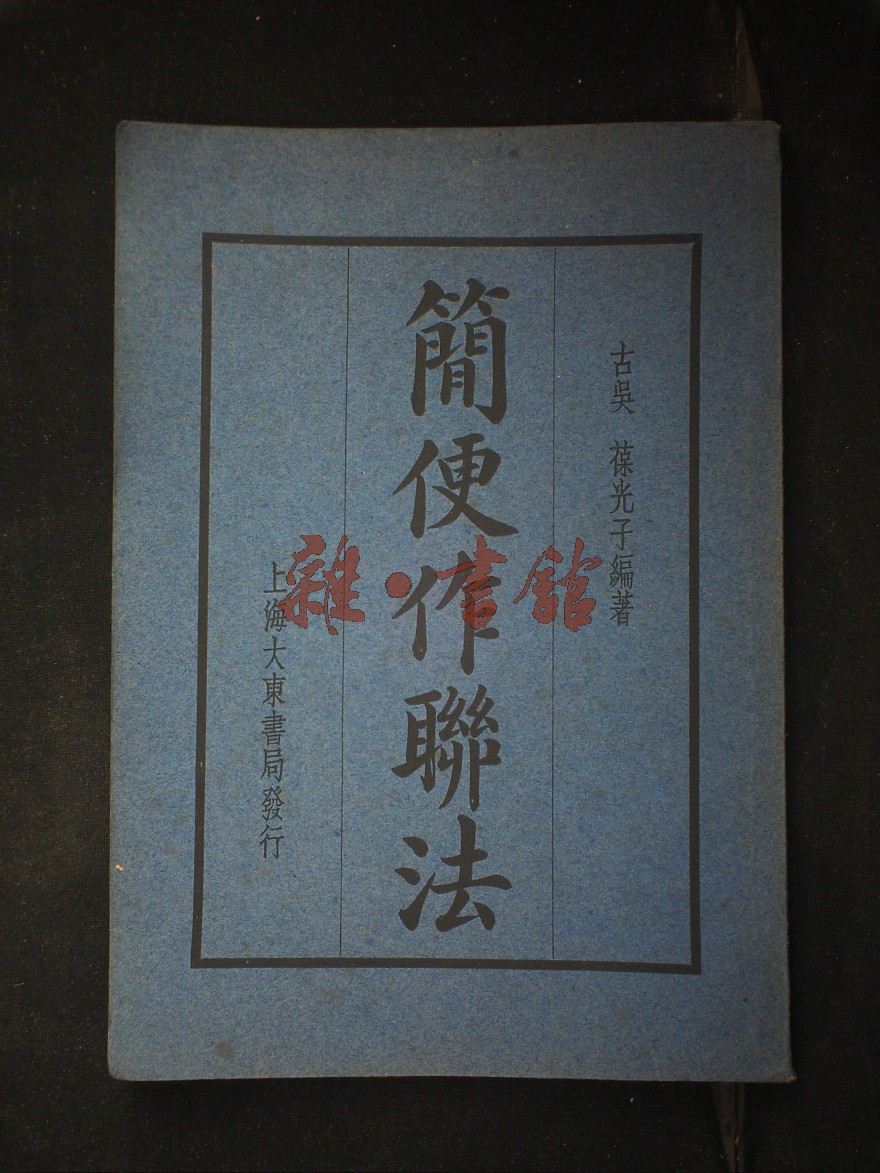 古吳 葆光子編著
簡便作聯法
上海大東書局發行
雜·書館